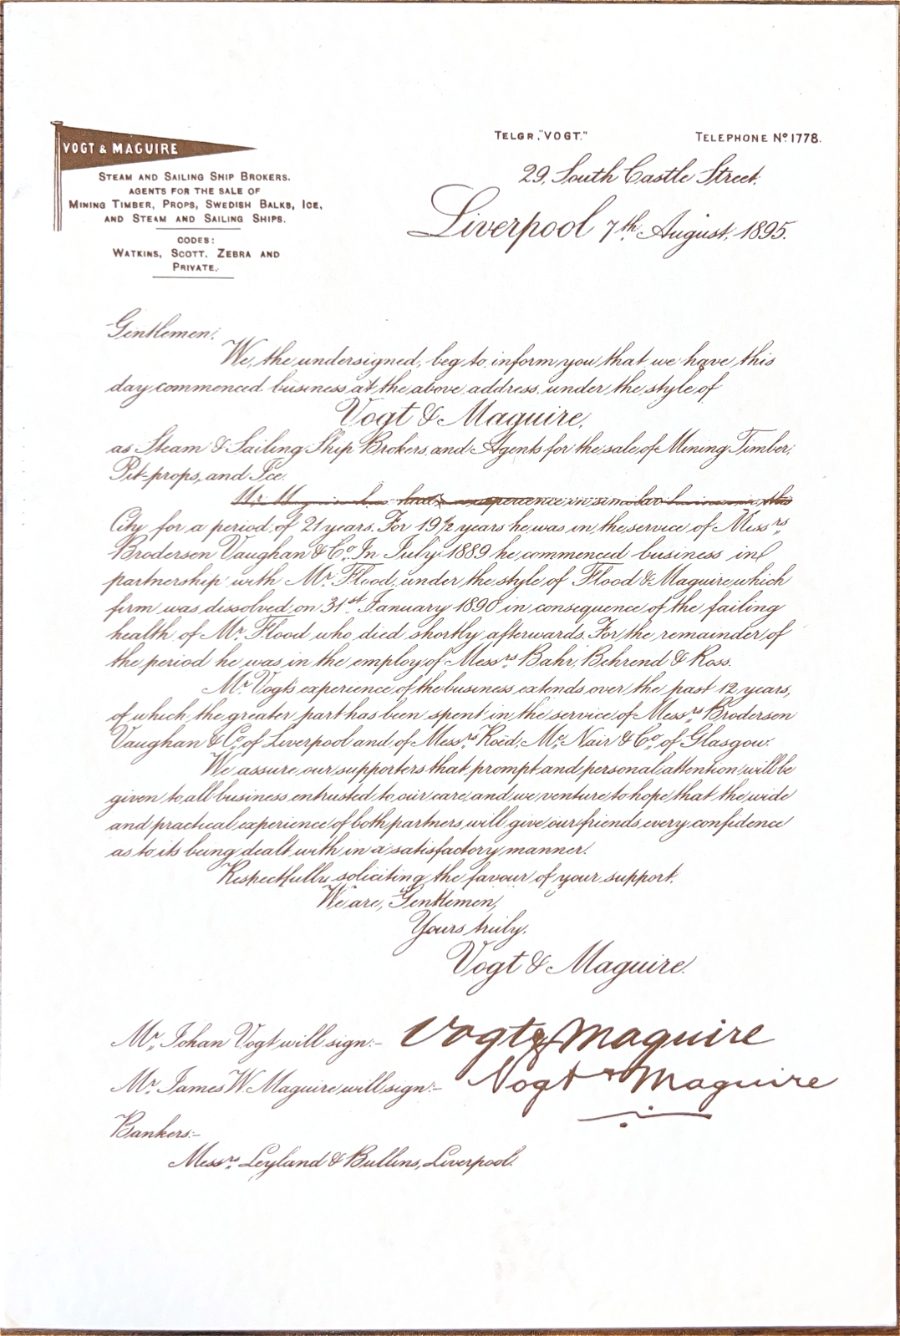 VOGT & MAGUIRE
STEAM AND SAILING SHIP BROKERS.
AGENTS FOR THE SALE OF
MINING TIMBER, PROPS, SWEDISH BALKS, ICE,
AND STEAM AND SAILING SHIPS.
CODES:
WATKINS, SCOTT, ZEBRA AND
PRIVATE.
TELGR. "VOGT." TELEPHONE No 1778.
29, South Castle Street,
Liverpool 7th August, 1895.
Gentlemen,
We, the undersigned, beg to inform you that we have this
day commenced business at the above address, under the style of
Vogt & Maguire,
as Steam & Sailing Ship Brokers, and Agents for the sale of Mining Timber,
Pit-props, and Ice.
Mr. Maguire has had experience in similar business in this
City for a period of 21 years. For 19½ years he was in the service of Messrs
Brodersen Vaughan & Co. In July 1889 he commenced business in
partnership with Mr. Flood, under the style of Flood & Maguire, which
firm was dissolved on 31st January 1890 in consequence of the failing
health of Mr. Flood who died shortly afterwards. For the remainder of
the period he was in the employ of Messrs Bahr, Behrend & Ross.
Mr. Vogt's experience of the business extends over the past 12 years,
of which the greater part has been spent in the service of Messrs Brodersen
Vaughan & Co. of Liverpool and of Messrs Röed, Mc.Nair & Co. of Glasgow.
We assure our supporters that prompt and personal attention will be
given to all business entrusted to our care, and we venture to hope that the wide
and practical experience of both partners will give our friends every confidence
as to its being dealt with in a satisfactory manner.
Respectfully soliciting the favour of your support.
We are, Gentlemen,
Yours truly,
Vogt & Maguire.
Mr. Johan Vogt will sign:- Vogt & Maguire
Mr. James W. Maguire will sign:- Vogt & Maguire
Bankers:-
Messrs Leyland & Bullins, Liverpool.